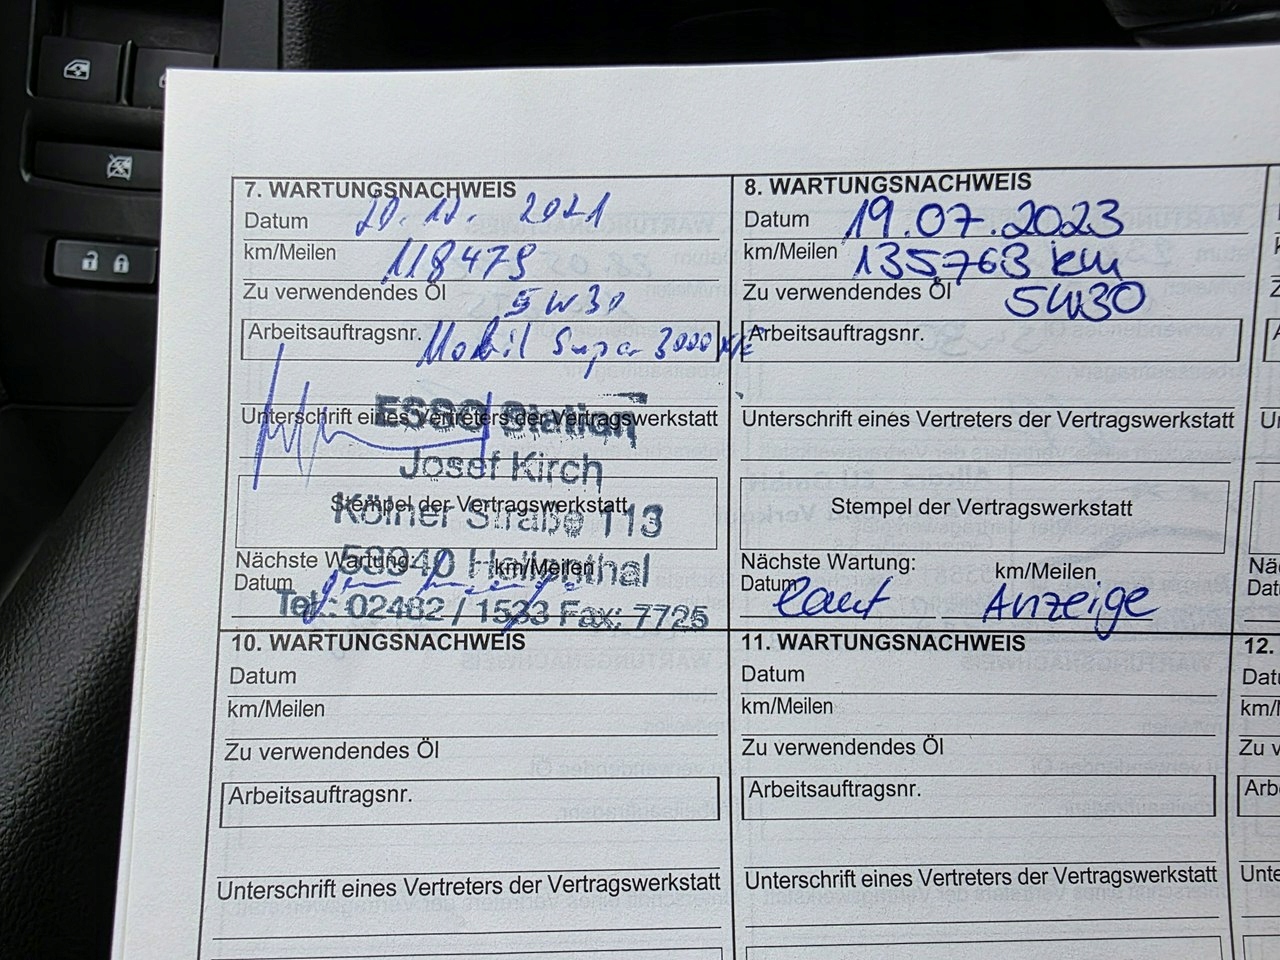 7. WARTUNGSNACHWEIS
Datum 20.12. 2021
km/Meilen 118479
Zu verwendendes Öl 5W30
Arbeitsauftragsnr. Mobil Super 3000
Unterschrift eines Vertreters der Vertragswerkstatt
ESSO Station
Josef Kirch
Stempel der Vertragswerkstatt
Kölner Straße 113
Nächste Wartung: km/Meilen
53940 Hellenthal
Datum
Tel.: 02482 / 1533 Fax: 7725
8. WARTUNGSNACHWEIS
Datum 19.07.2023
km/Meilen 135763 km
Zu verwendendes Öl 5W30
Arbeitsauftragsnr.
Unterschrift eines Vertreters der Vertragswerkstatt
Stempel der Vertragswerkstatt
Nächste Wartung:
km/Meilen
Datum laut Anzeige
10. WARTUNGSNACHWEIS
Datum
km/Meilen
Zu verwendendes Öl
Arbeitsauftragsnr.
Unterschrift eines Vertreters der Vertragswerkstatt
11. WARTUNGSNACHWEIS
Datum
km/Meilen
Zu verwendendes Öl
Arbeitsauftragsnr.
Unterschrift eines Vertreters der Vertragswerkstatt
12.